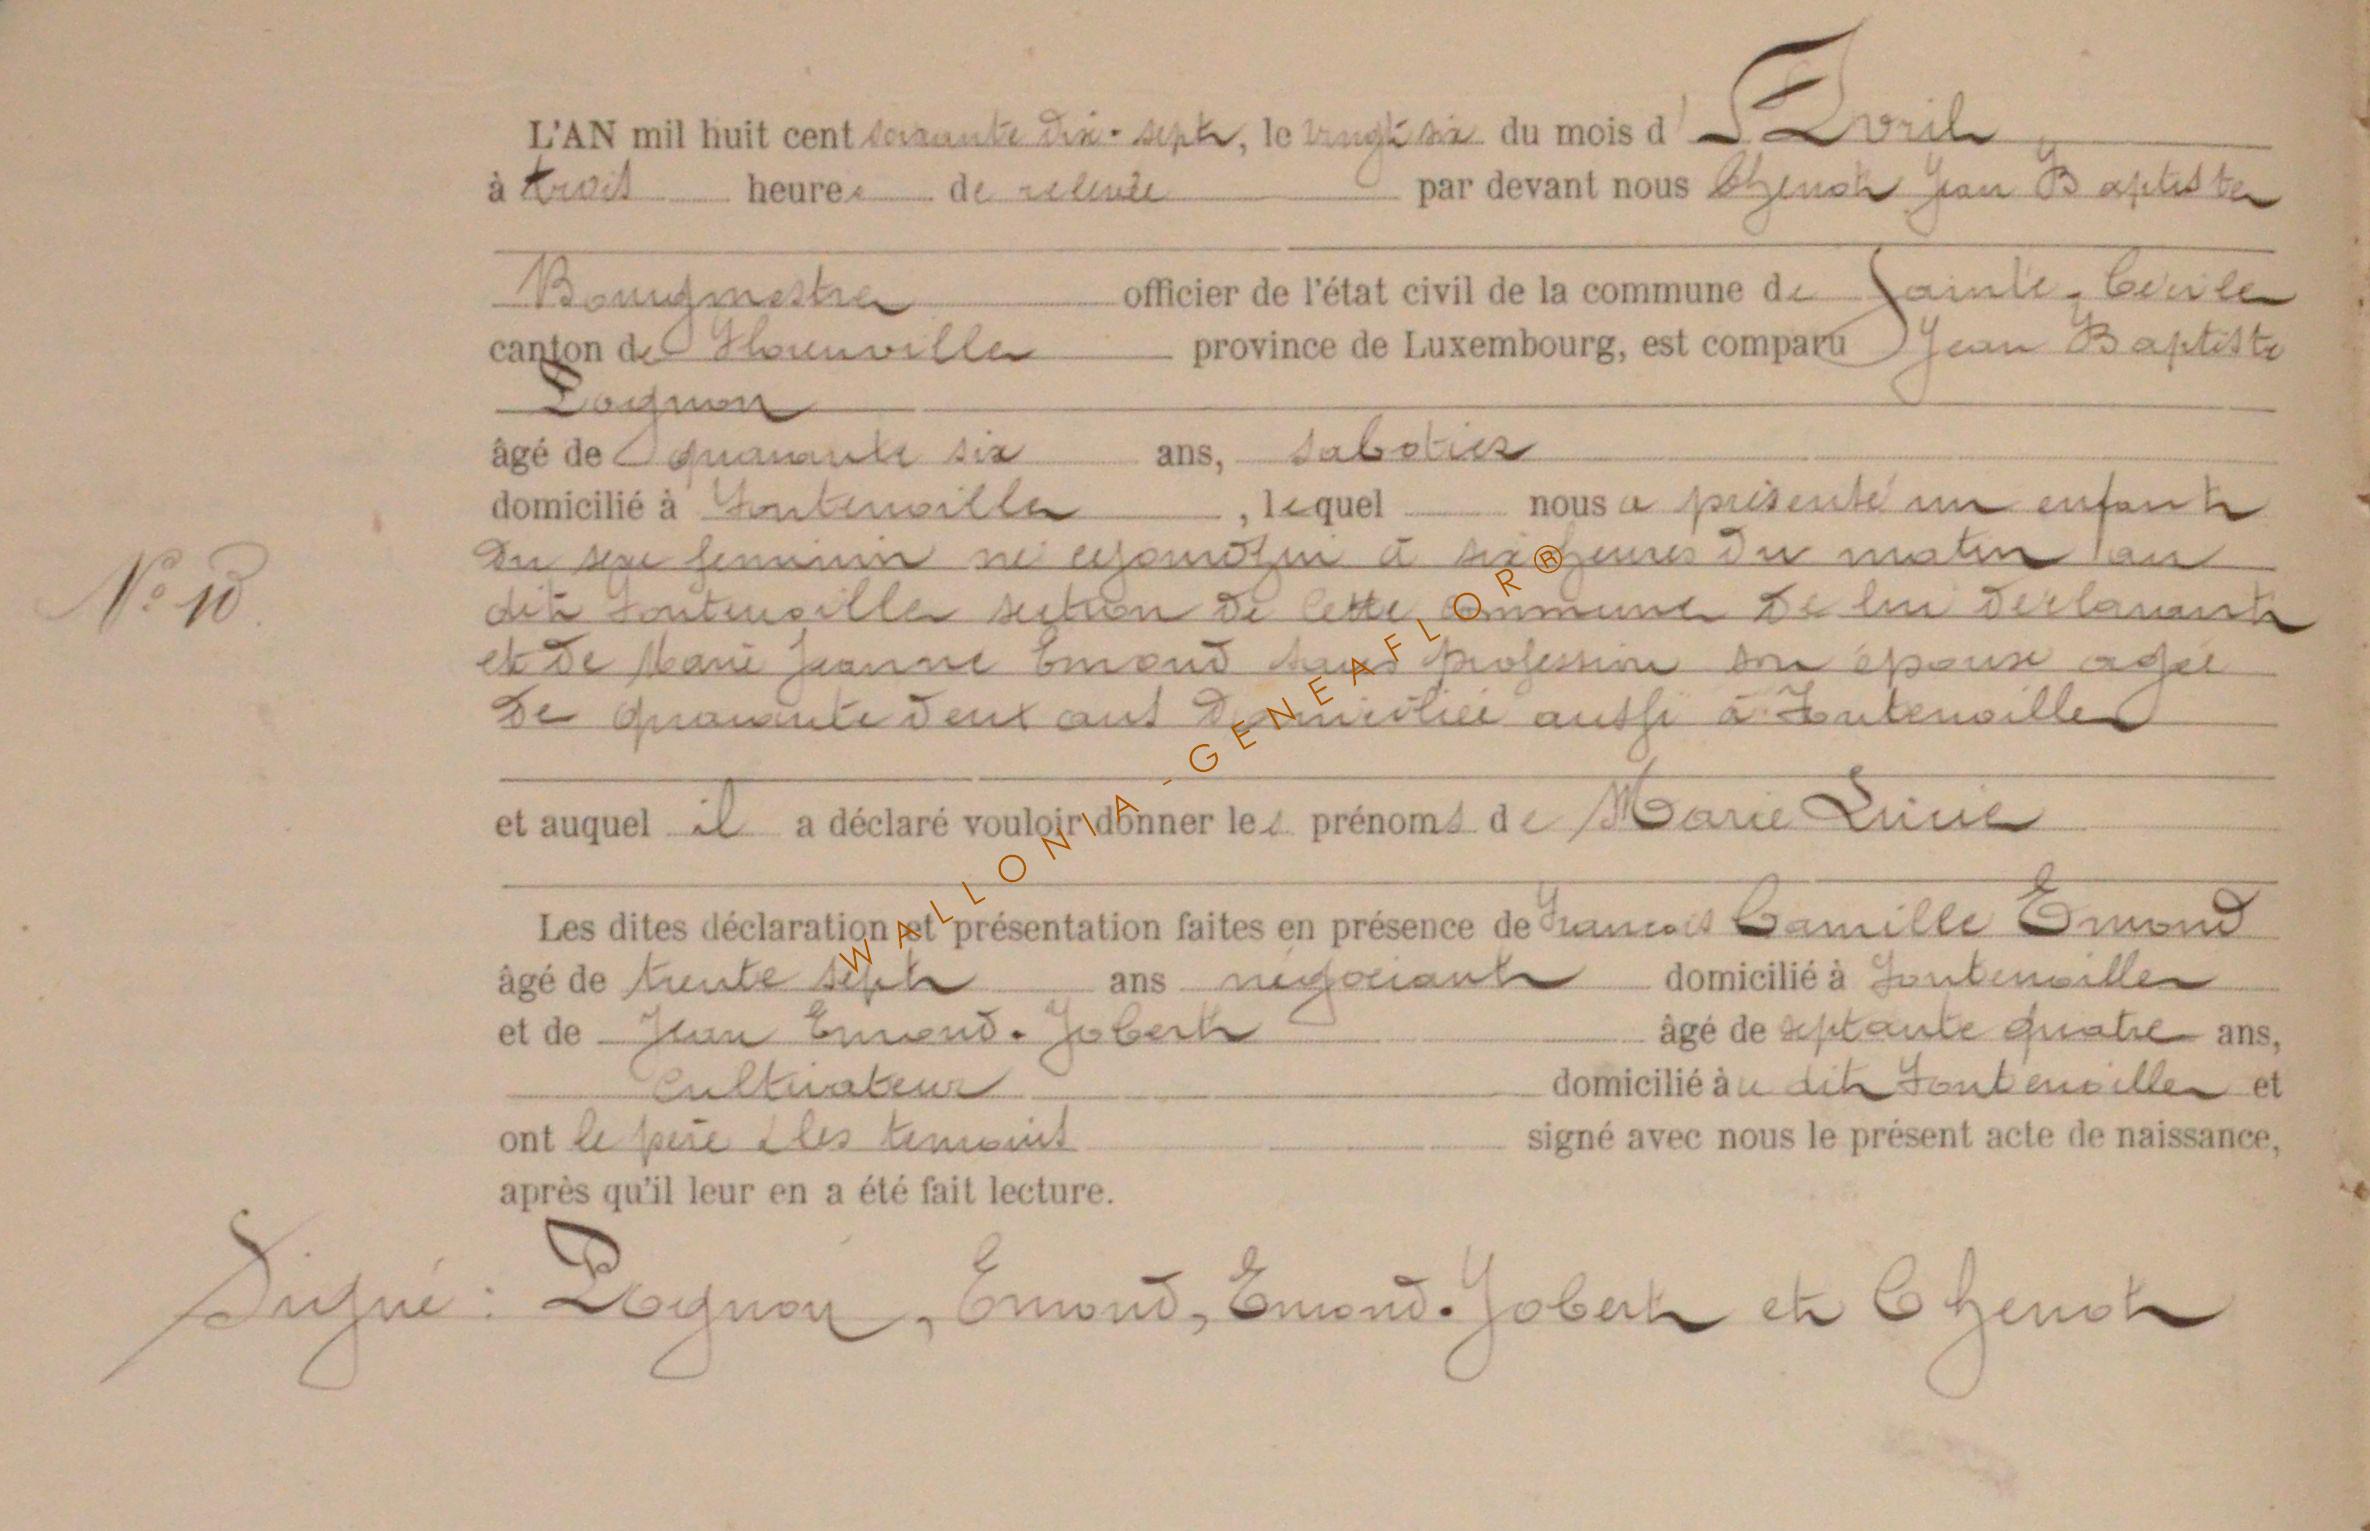 L'AN mil huit cent soixante dix-sept, le vingt six du mois d'Avril
à trois heures de relevée par devant nous Chenot Jean Baptiste
Bourgmestre officier de l'état civil de la commune de Sainte-Cécile
canton de Florenville province de Luxembourg, est comparu Jean Baptiste
Lognon
âgé de quarante six ans, sabotier
domicilié à Fontenoille, lequel nous a présenté un enfant
du sexe feminin né cejourd'hui à six heures du matin au
dit Fontenoille section de cette commune de lui déclarant
et de Marie Jeanne Emond sans profession son épouse agée
de quarante deux ans domiciliée aussi à Fontenoille
N° 18.
et auquel il a déclaré vouloir donner les prénoms de Marie Lucie
Les dites déclaration et présentation faites en présence de François Camille Emond
âgé de trente sept ans négociant domicilié à Fontenoille
et de Jean Emond-Jobert âgé de septante quatre ans,
cultivateur domicilié au dit Fontenoille et
ont le père & les temoins signé avec nous le présent acte de naissance,
après qu'il leur en a été fait lecture.
Signé : Lognon, Emond, Emond-Jobert et Chenot
WALLONIA-GENEAFLOR®